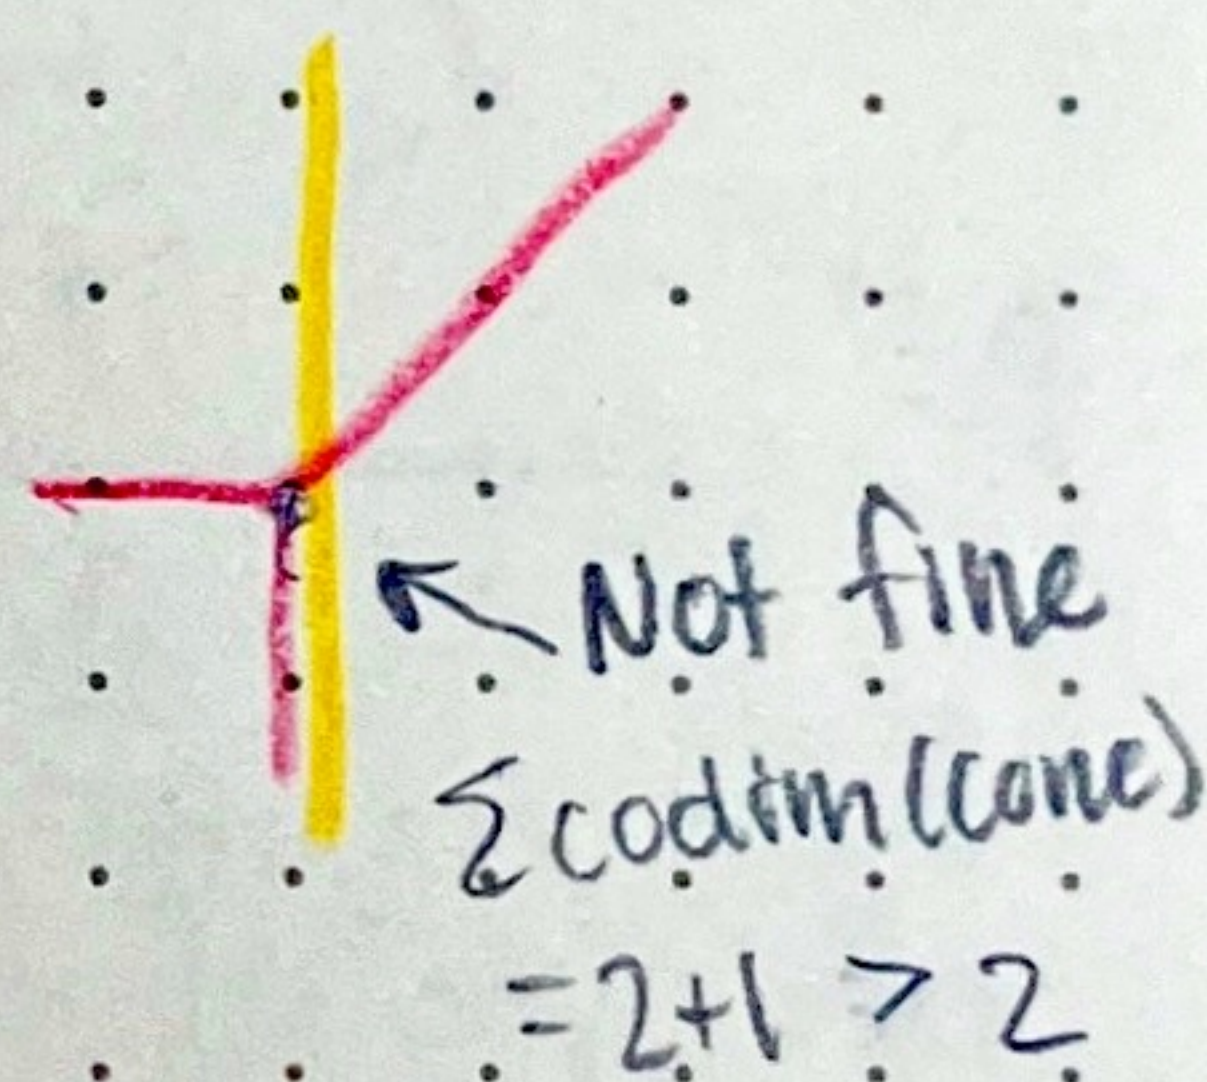 Not fine
Σcodim(cone)
=2+1 > 2